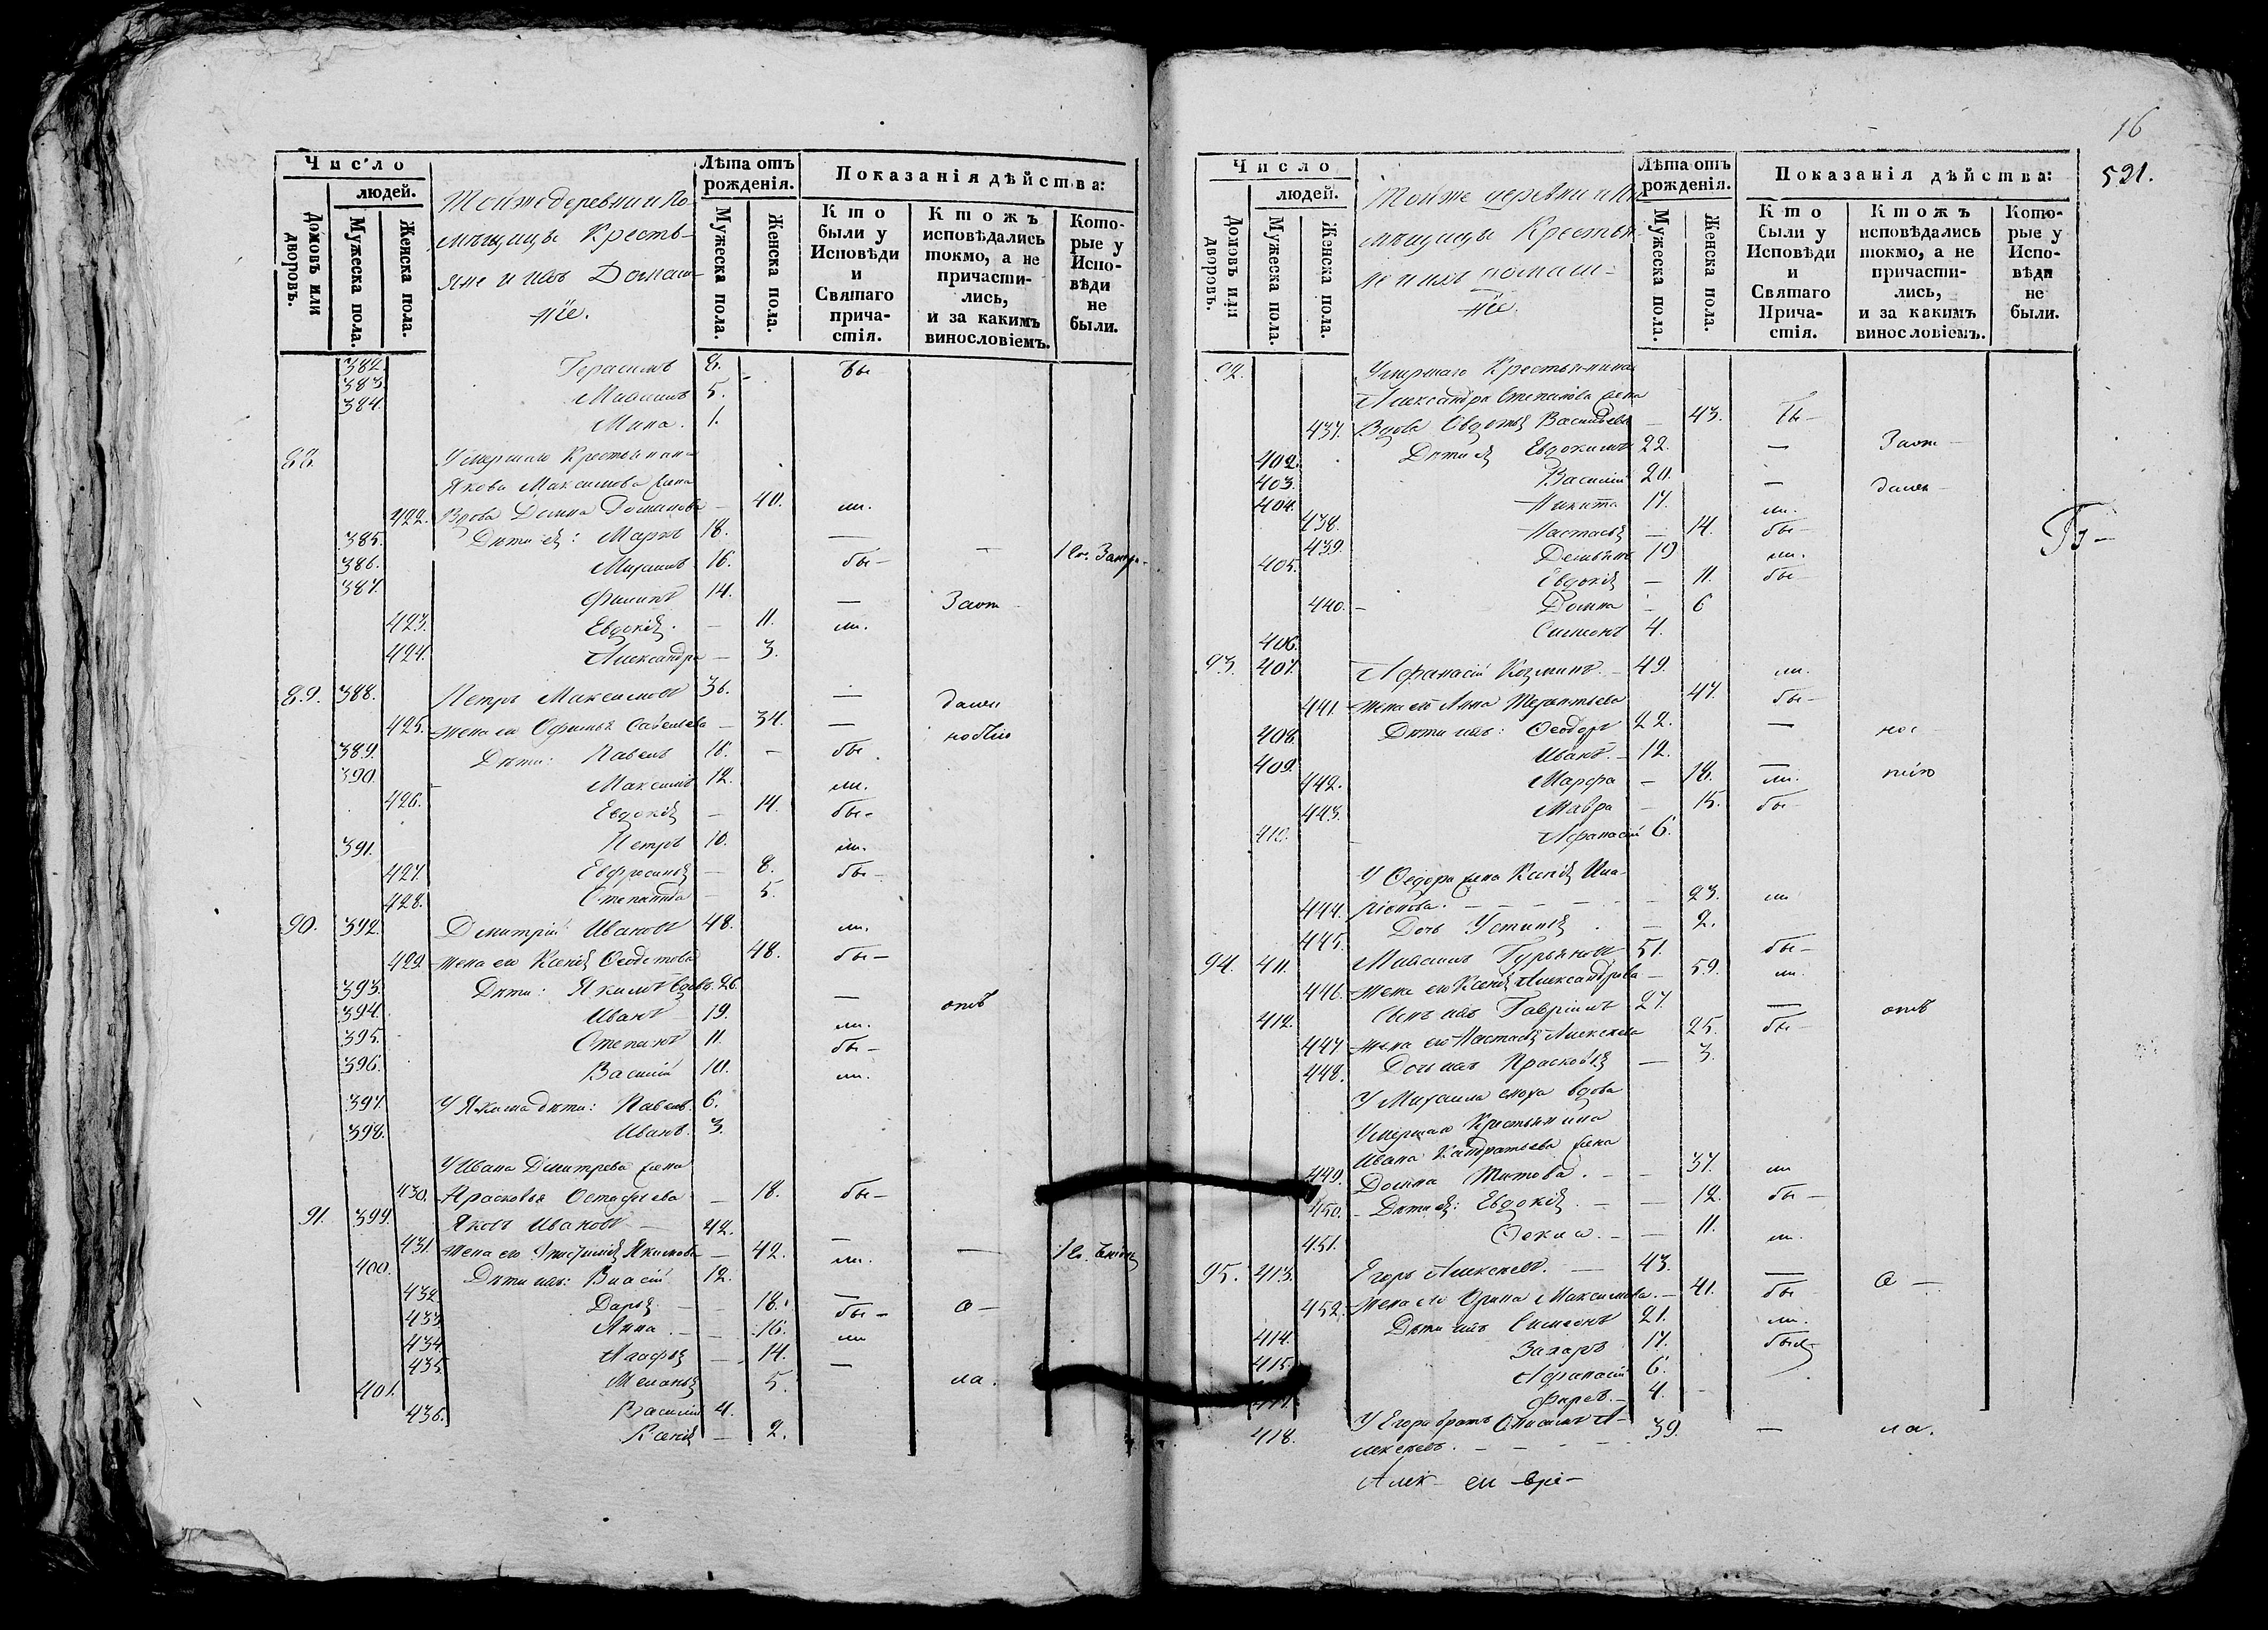 Число
людей.
Домовъ или дворовъ.
Мужеска пола.
Женска пола.
Тойже деревни и По-
мѣщицы Кресть-
яне и ихъ Домаш-
нïе.
Лѣта отъ рожденія.
Мужеска пола.
Женска пола.
Показанія дѣйства:
Кто были у Исповѣди и Святаго прича-стія.
Ктожъ исповѣдались токмо, а не причасти-лись, и за какимъ винословіемъ.
Кото-рые у Испо-вѣди не были.
382. Герасимъ 8. бы
383. Михаилъ 5.
384. Мина. 1.
88. Умершаго Крестьянина
Якова Максимова жена
422. Вдова Домна Романова — 40. ли.
385. Дѣти ея: Марко 18. —
386. Михаилъ 16. бы — —
387. Филипъ 14. — Заот
423. Евдокія. — 11. ли.
424. Александра — 3.
89. 388. Петръ Максимовъ 36. — дален
425. жена его Офимья Савельева — 34. — ностiю
389. Дѣти: Павелъ 18. — бы
390. Максимъ 12. ли.
426. Евдокія — 14. бы —
391. Петръ 10. ли.
427. Евфросинья — 8. бы —
428. Степанида — 5.
90. 392. Димитрій Ивановъ 48. ли.
429. жена его Ксенія Ѳедотова 48. бы —
393. Дѣти: Якимъ вдовъ. 26. — отъ
394. Иванъ 19. ли.
395. Степанъ 11. бы —
396. Василій 10. ли.
397. У Якима дѣти: Павелъ. 6.
398. Иванъ. 3.
У Ивана Дмитрева жена
430. Прасковья Остафьева — 18. бы —
91. 399. Яковъ Ивановъ — 42. —
431. жена его Якимова — 42. ли. —
400. Дѣти ихъ: Власій 12. —
432. Дарья — — 18. бы — о —
433. Анна. — — 16. ли
434. Агафья — 14. —
435. Меланья 5. ла.
401. Василій 4.
436. Ксенія — 2.
16
521.
Число
людей.
Домовъ или дворовъ.
Мужеска пола.
Женска пола.
Тойже деревни и По-
мѣщицы Крестья-
не и ихъ домаш-
нïе.
Лѣта отъ рожденія.
Мужеска пола.
Женска пола.
Показанія дѣйства:
Кто были у Исповѣди и Святаго Прича-стія.
Ктожъ исповѣдались токмо, а не причасти-лись, и за какимъ винословіемъ.
Кото-рые у Испо-вѣди не были.
92. Умершаго Крестьянина
Александра Степанова жена
437. Вдова Овдотья Васильева — 43. бы —
402. Дѣти ея Евдокимъ 22. — Заот —
403. Василій 20. — дален —
404. Никита 17. ли.
438. Настасья — 14. бы —
405. Демьянъ 19 ли.
439. Евдокія — 11. бы —
440. Домна — 6
406. Симионъ 4.
93. 407. Афанасій Козминъ. — 49. ли.
441. жена его Анна Терентьева 47. бы —
408. Дѣти ихъ: Ѳеодоръ 22. — нос
409. Иванъ. — 12. —
442. Марфа — 18. ли. тiю
443. Мавра — 15. бы —
410. Афанасій 6.
У Ѳедора жена Ксенія Ила-
444. ріонова. — — — 23. ли
445. Дочь Устинья — 2.
94. 411. Михаилъ Гурьяновъ 51. бы —
446. жена его Ксенія Александрова — 59. ли.
412. Сынъ ихъ Гавріилъ 27. — отъ
447. жена его Настасья Алексѣева 25. бы —
448. Дочь ихъ Прасковья — 3.
У Михаила сноха вдова
Умершаго Крестьянина
Ивана Кандратьева жена
449. Домна Титова. — — 37. ли
450. — Дѣти ея: Евдокія. — — 12. бы —
451. Ѳекла. — — 11. ли.
95. 413. Егоръ Алексѣевъ. — 43. — О —
452. жена его Орина Максимова. — 41. бы
414. Дѣти ихъ Симеонъ 21. ли.
415. Захаръ 17. были
Афанасій 6.
417. Фирсъ. — 4.
У Егора братъ Онисимъ А-
418. лексѣевъ. — — — 39. — ла.